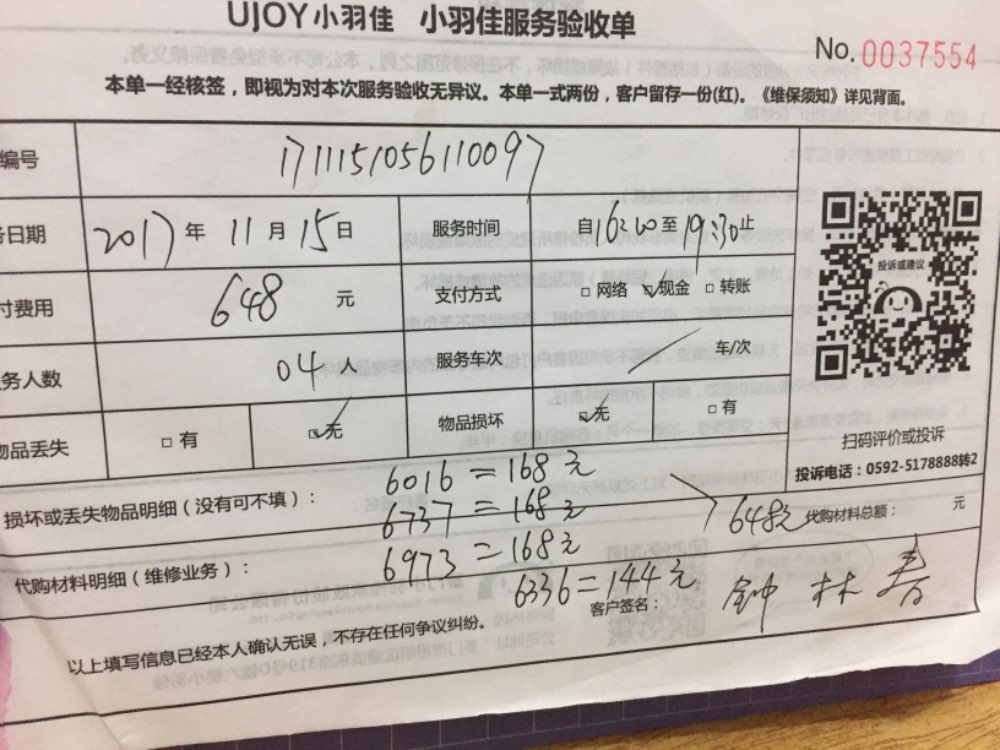 UJOY小羽佳 小羽佳服务验收单
No.0037554
本单一经核签，即视为对本次服务验收无异议。本单一式两份，客户留存一份(红)。《维保须知》详见背面。
编号 1711151056110097
务日期 2017年11月15日 服务时间 自16:00至19:30止
付费用 648元 支付方式 □网络 ☑现金 □转账
务人数 04人 服务车次 / 车/次
物品丢失 □有 ☑无 物品损坏 ☑无 □有
投诉或建议
扫码评价或投诉
投诉电话：0592-5178888转2
损坏或丢失物品明细（没有可不填）：
6016=168元
6737=168元
6973=168元
6336=144元
648元 代购材料总额： 元
代购材料明细（维修业务）：
客户签名： 钟林春
以上填写信息已经本人确认无误，不存在任何争议纠纷。